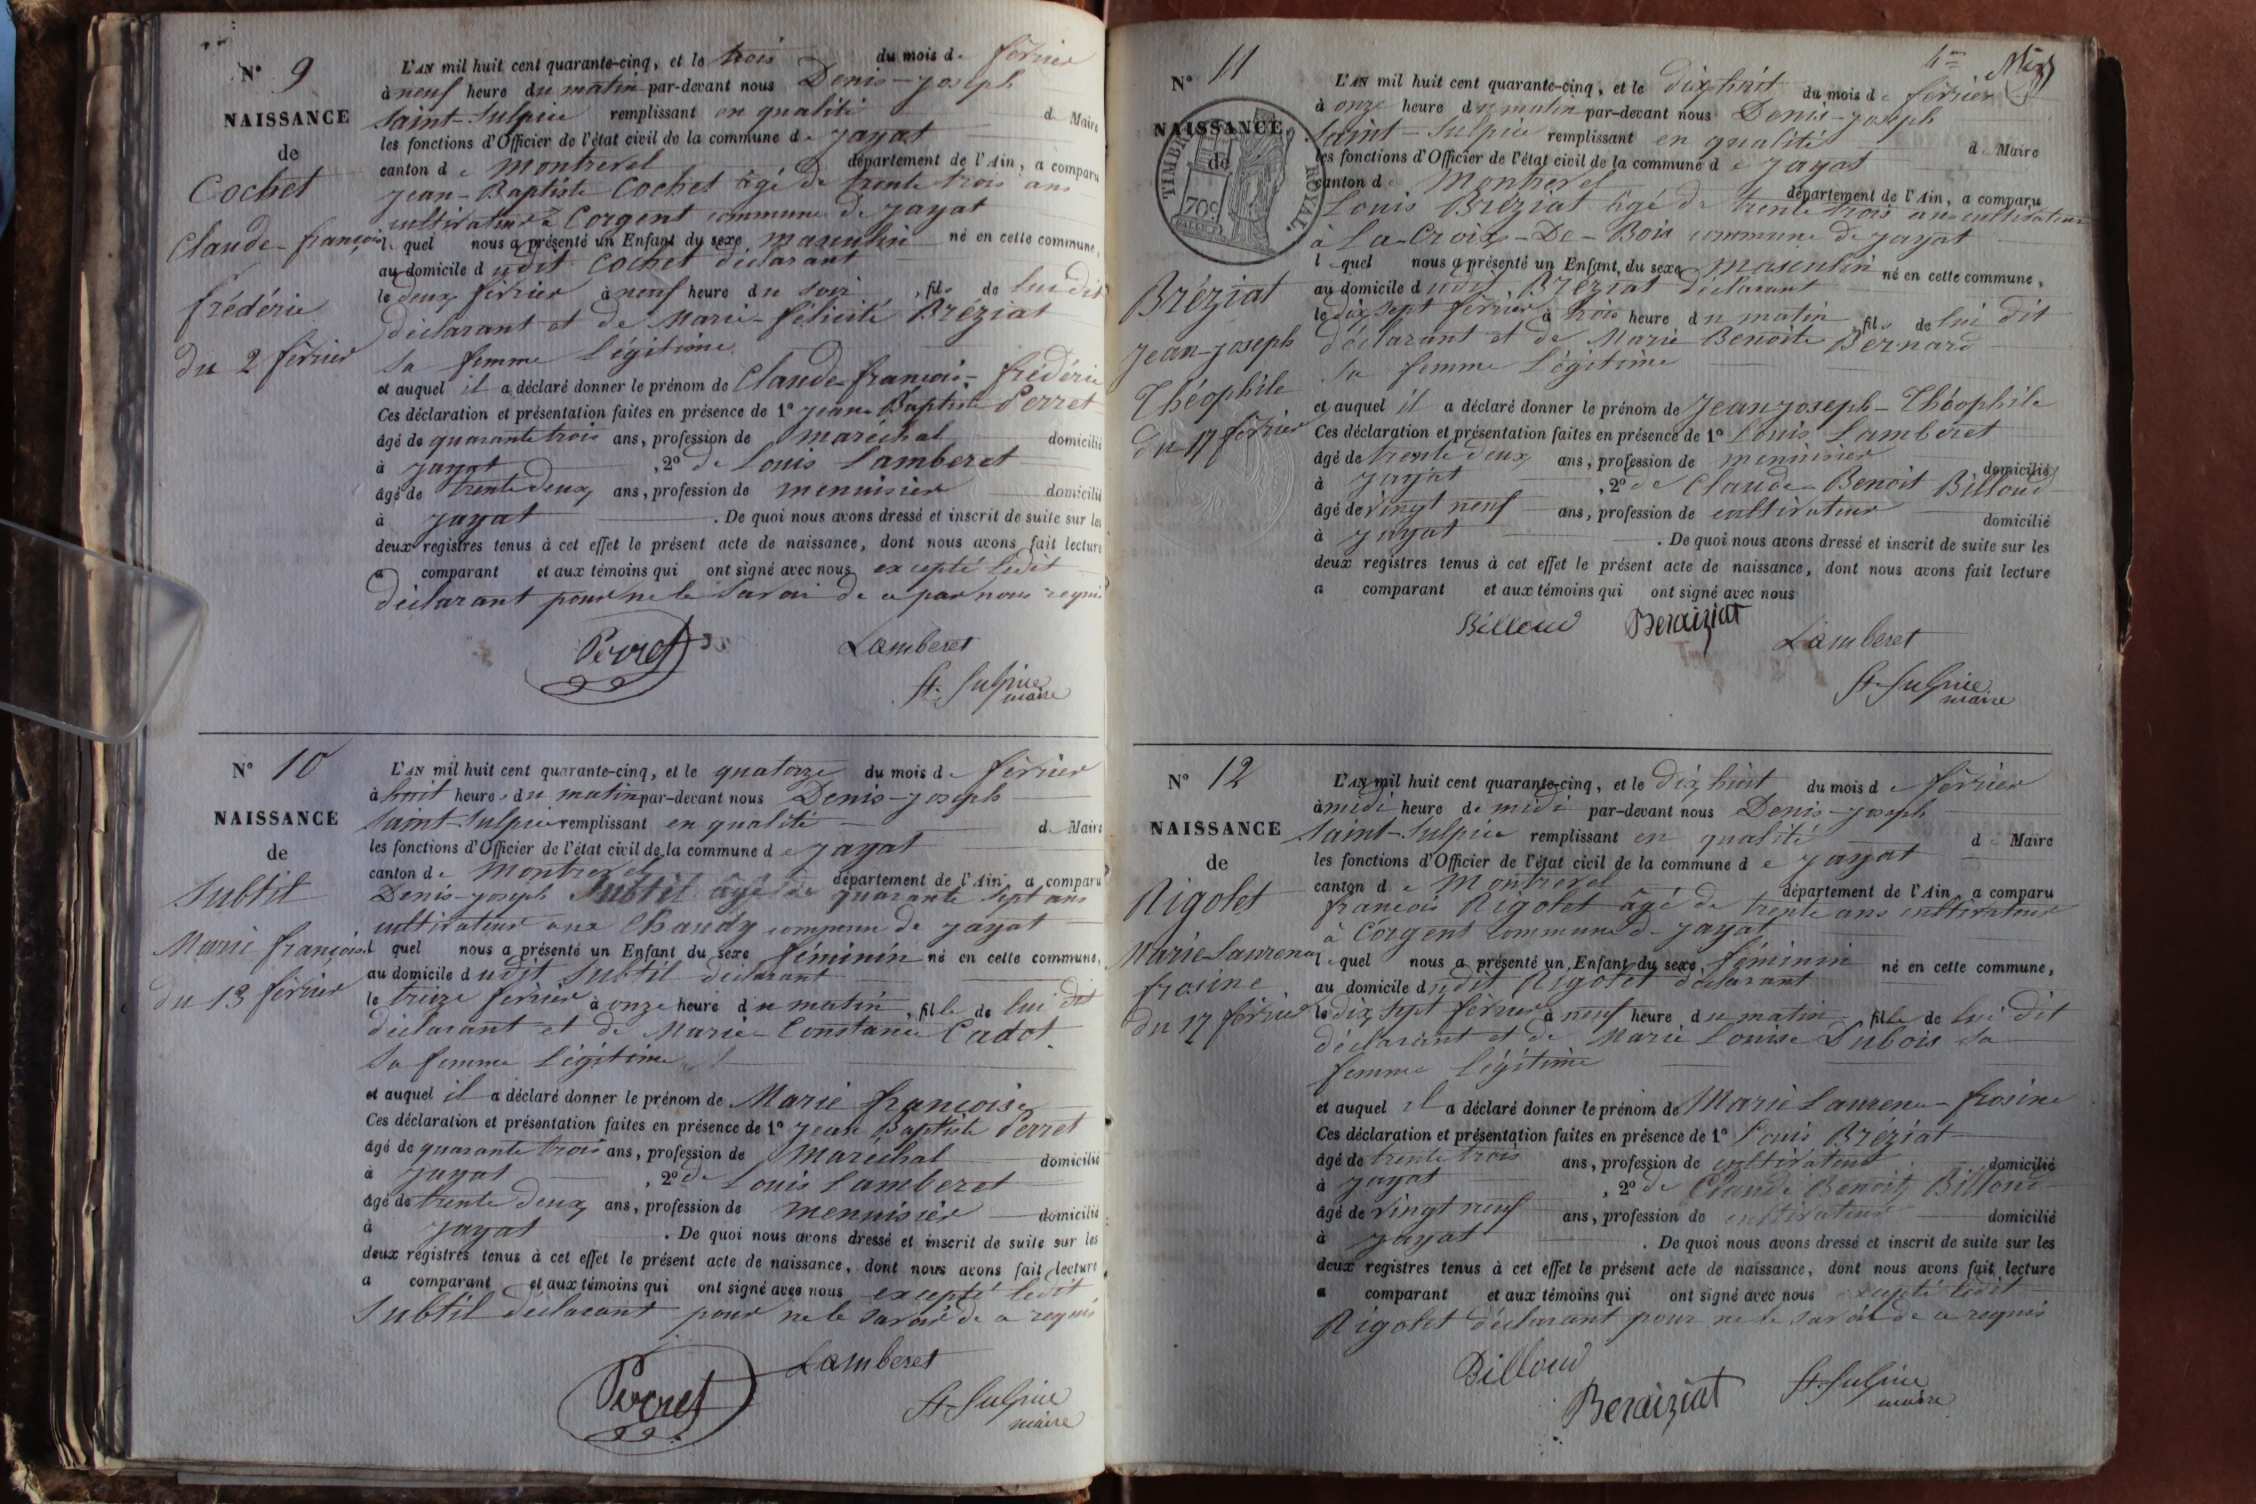 N° 9
NAISSANCE
de
Cochet
Claude-françois
frédéric
du 2 février
L'AN mil huit cent quarante-cinq, et le trois du mois de février
à neuf heure du matin par-devant nous Denis-joseph
Saint-Sulpice remplissant en qualité de Maire
les fonctions d'Officier de l'état civil de la commune de jayat
canton de Montrevel département de l'Ain, a comparu
jean-Baptiste Cochet âgé de trente trois ans
cultivateur à Corgent commune de jayat
lequel nous a présenté un Enfant du sexe masculin né en cette commune,
au domicile dudit Cochet déclarant
le deux février à neuf heure du soir, fils de lui dit
déclarant et de Marie-félicité Bréziat
sa femme légitime
et auquel il a déclaré donner le prénom de Claude-françois-frédéric
Ces déclaration et présentation faites en présence de 1° jean Baptiste Perret
âgé de quarante trois ans, profession de maréchal domicilié
à jayat, 2° de Louis Lamberet
âgé de trente deux ans, profession de menuisier domicilié
à jayat. De quoi nous avons dressé et inscrit de suite sur les
deux registres tenus à cet effet le présent acte de naissance, dont nous avons fait lecture
a comparant et aux témoins qui ont signé avec nous excepté ledit
déclarant pour ne le savoir de ce par nous requis
Perret Lamberet
St. Sulpice
maire
N° 10
NAISSANCE
de
Subtil
Marie françoise
du 13 février
L'AN mil huit cent quarante-cinq, et le quatorze du mois de février
à huit heures du matin par-devant nous Denis-joseph
Saint-Sulpice remplissant en qualité de Maire
les fonctions d'Officier de l'état civil de la commune de jayat
canton de Montrevel département de l'Ain, a comparu
Denis-joseph Subtil âgé de quarante sept ans
cultivateur aux Chaudy commune de jayat
lequel nous a présenté un Enfant du sexe féminin né en cette commune,
au domicile dudit Subtil déclarant
le treize février à onze heure du matin, fille de lui dit
déclarant et de Marie-Constance Cadot
sa femme légitime
et auquel il a déclaré donner le prénom de Marie françoise
Ces déclaration et présentation faites en présence de 1° jean Baptiste Perret
âgé de quarante trois ans, profession de Maréchal domicilié
à jayat, 2° de Louis Lamberet
âgé de trente deux ans, profession de menuisier domicilié
à jayat. De quoi nous avons dressé et inscrit de suite sur les
deux registres tenus à cet effet le présent acte de naissance, dont nous avons fait lecture
a comparant et aux témoins qui ont signé avec nous excepté ledit
Subtil déclarant pour ne le savoir de ce requis
Perret Lamberet
St. Sulpice
maire
N° 11
NAISSANCE
de
TIMBRE ROYAL.
70c
Bréziat
jean-joseph
Théophile
du 17 février
L'AN mil huit cent quarante-cinq, et le dix huit du mois de février
à onze heure du matin par-devant nous Denis-joseph
Saint-Sulpice remplissant en qualité de Maire
les fonctions d'Officier de l'état civil de la commune de jayat
canton de Montrevel département de l'Ain, a comparu
Louis Bréziat âgé de trente trois ans cultivateur
à La-Croix-De-Bois commune de jayat
lequel nous a présenté un Enfant, du sexe masculin né en cette commune,
au domicile dudit Bréziat déclarant
le dix sept février à trois heure du matin, fils de lui dit
déclarant et de Marie Benoite Bernard
sa femme légitime
et auquel il a déclaré donner le prénom de jean joseph-Théophile
Ces déclaration et présentation faites en présence de 1° Louis Lamberet
âgé de trente deux ans, profession de menuisier domicilié
à jayat, 2° de Claude-Benoit Billoud
âgé de vingt neuf ans, profession de cultivateur domicilié
à jayat. De quoi nous avons dressé et inscrit de suite sur les
deux registres tenus à cet effet le présent acte de naissance, dont nous avons fait lecture
a comparant et aux témoins qui ont signé avec nous
Billoud Beraiziat Lamberet
St. Sulpice
maire
N° 12
NAISSANCE
de
Rigolet
Marie-Laurence
frosine
du 17 février
L'AN mil huit cent quarante-cinq, et le dix huit du mois de février
à midi heure de midi par-devant nous Denis-joseph
Saint-Sulpice remplissant en qualité de Maire
les fonctions d'Officier de l'état civil de la commune de jayat
canton de Montrevel département de l'Ain, a comparu
françois Rigolet âgé de trente ans cultivateur
à Corgent commune de jayat
lequel nous a présenté un Enfant du sexe féminin né en cette commune,
au domicile dudit Rigolet déclarant
le dix sept février à neuf heure du matin, fille de lui dit
déclarant et de Marie Louise Dubois sa
femme légitime
et auquel il a déclaré donner le prénom de Marie Laurence-frosine
Ces déclaration et présentation faites en présence de 1° Louis Bréziat
âgé de trente trois ans, profession de cultivateur domicilié
à jayat, 2° de Claude Benoit Billoud
âgé de vingt neuf ans, profession de cultivateur domicilié
à jayat. De quoi nous avons dressé et inscrit de suite sur les
deux registres tenus à cet effet le présent acte de naissance, dont nous avons fait lecture
a comparant et aux témoins qui ont signé avec nous excepté ledit
Rigolet déclarant pour ne le savoir de ce requis
Billoud
Beraiziat St. Sulpice
maire